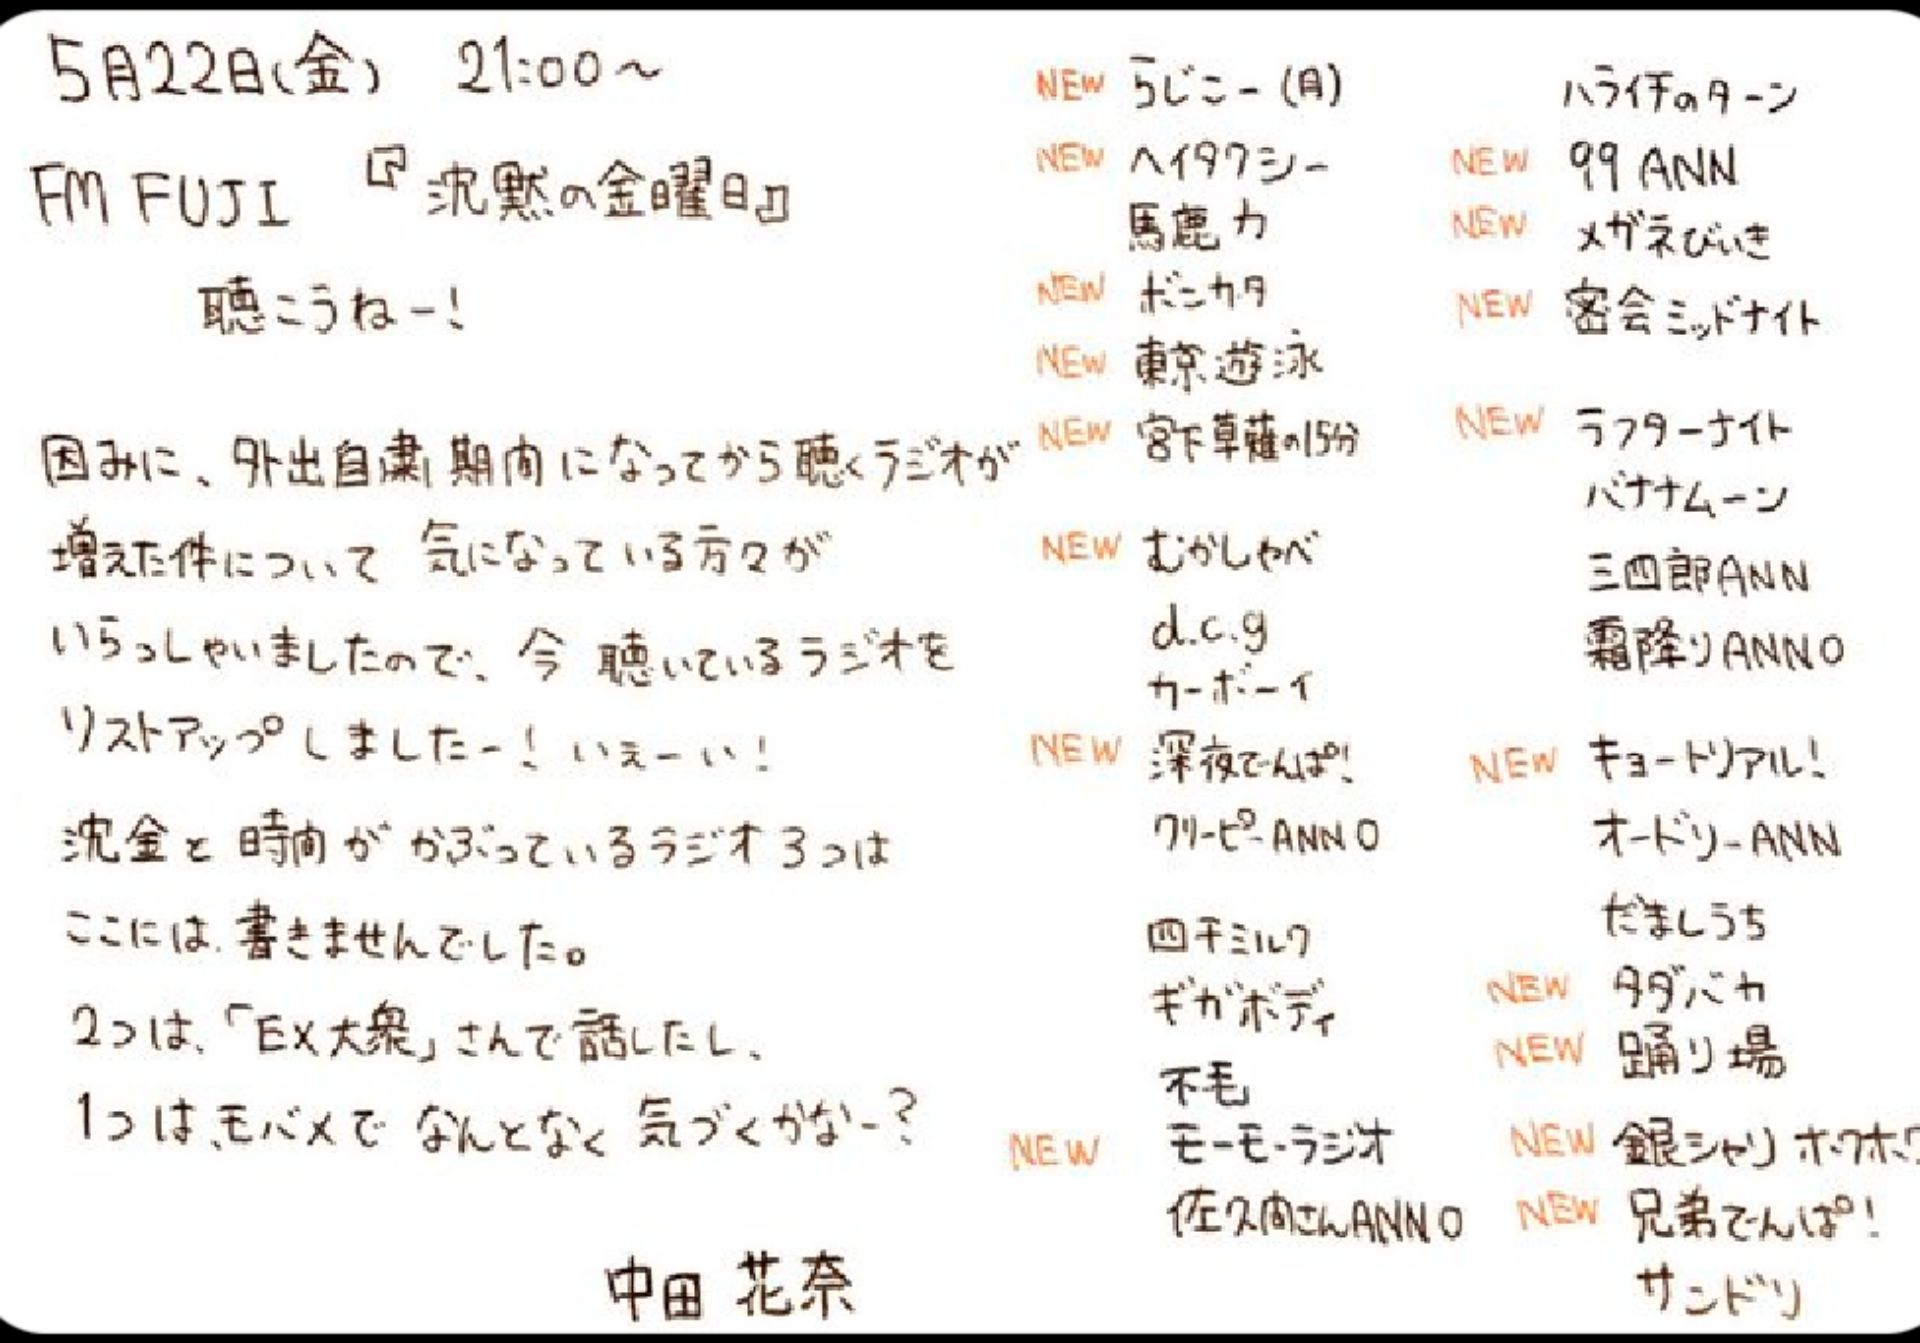 5月22日(金) 21:00〜
FM FUJI 『沈黙の金曜日』
聴こうねー!
因みに、外出自粛期間になってから聴くラジオが
増えた件について 気になっている方々が
いらっしゃいましたので、今 聴いているラジオを
リストアップしましたー! いぇーい!
沈金と時間がかぶっているラジオ3つは
ここには書きませんでした。
2つは、「EX大衆」さんで話したし、
1つは、モバメでなんとなく気づくかなー?
中田 花奈
NEW らじこー(月)
NEW ヘイタクシー
馬鹿力
NEW ボニカタ
NEW 東京遊泳
NEW 宮下草薙の15分
NEW むかしゃべ
d.c.g
カーボーイ
NEW 深夜でんぱ!
クリーピーANN0
四千ミルク
ギガボディ
不毛
NEW モーモーラジオ
佐久間さんANN0
ハライチのターン
NEW 99 ANN
NEW メガネびいき
NEW 密会ミッドナイト
NEW ラフターナイト
バナナムーン
三四郎ANN
霜降りANN0
NEW キョートリアル!
オードリーANN
だましうち
NEW タダバカ
NEW 踊り場
NEW 銀シャリ ホクホク
NEW 兄弟でんぱ!
サンドリ